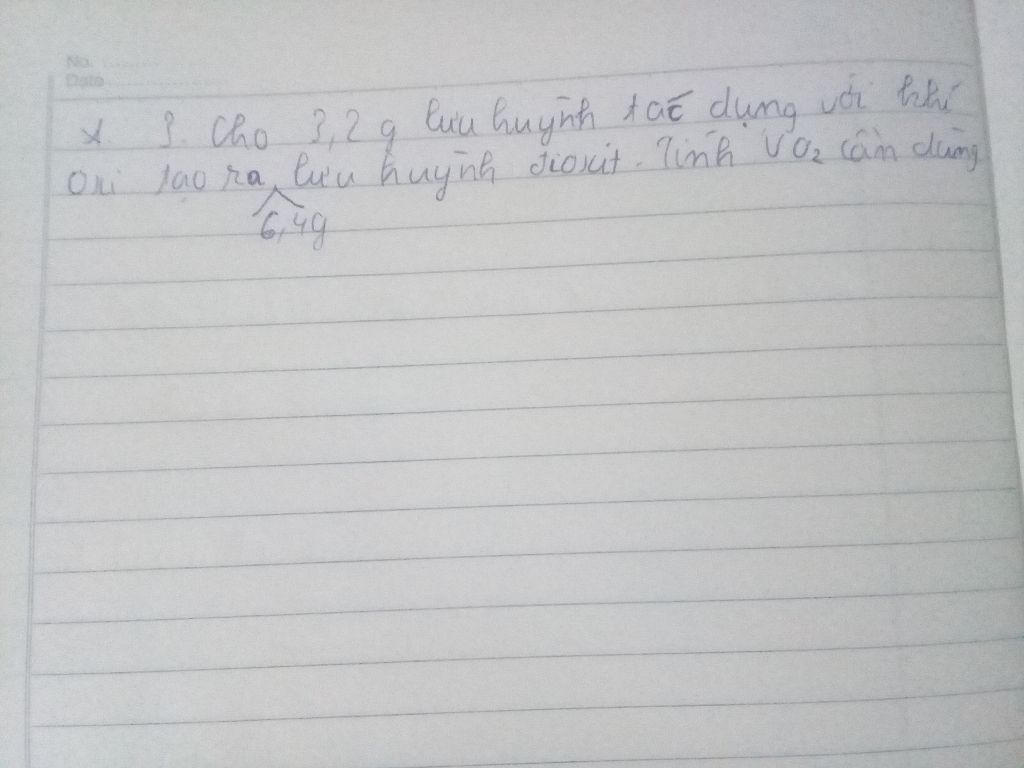 No.
Date
* 3. Cho 3,2 g lưu huỳnh tác dụng với khí
oxi tạo ra lưu huỳnh đioxit. Tính VO₂ cần dùng
6,4g